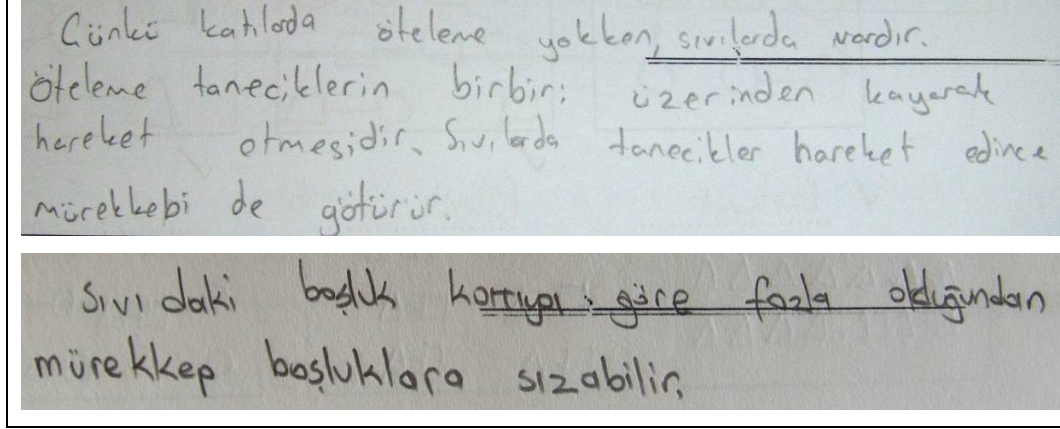 Çünkü katılarda öteleme yokken, sıvılarda vardır.
Öteleme taneciklerin birbiri üzerinden kayarak
hareket etmesidir. Sıvılarda tanecikler hareket edince
mürekkebi de götürür.
Sıvıdaki boşluk katıya göre fazla olduğundan
mürekkep boşluklara sızabilir.